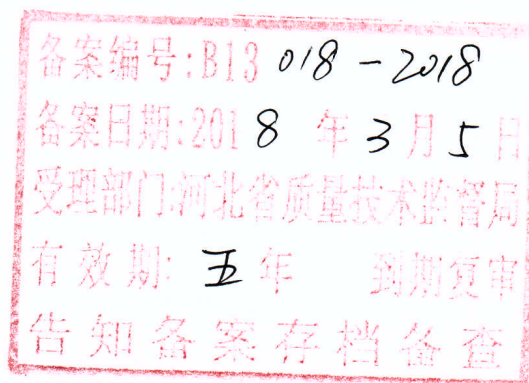 备案编号:B13 018-2018
备案日期:2018年3月5日
受理部门:河北省质量技术监督局
有效期:五年 到期复审
告知备案存档备查